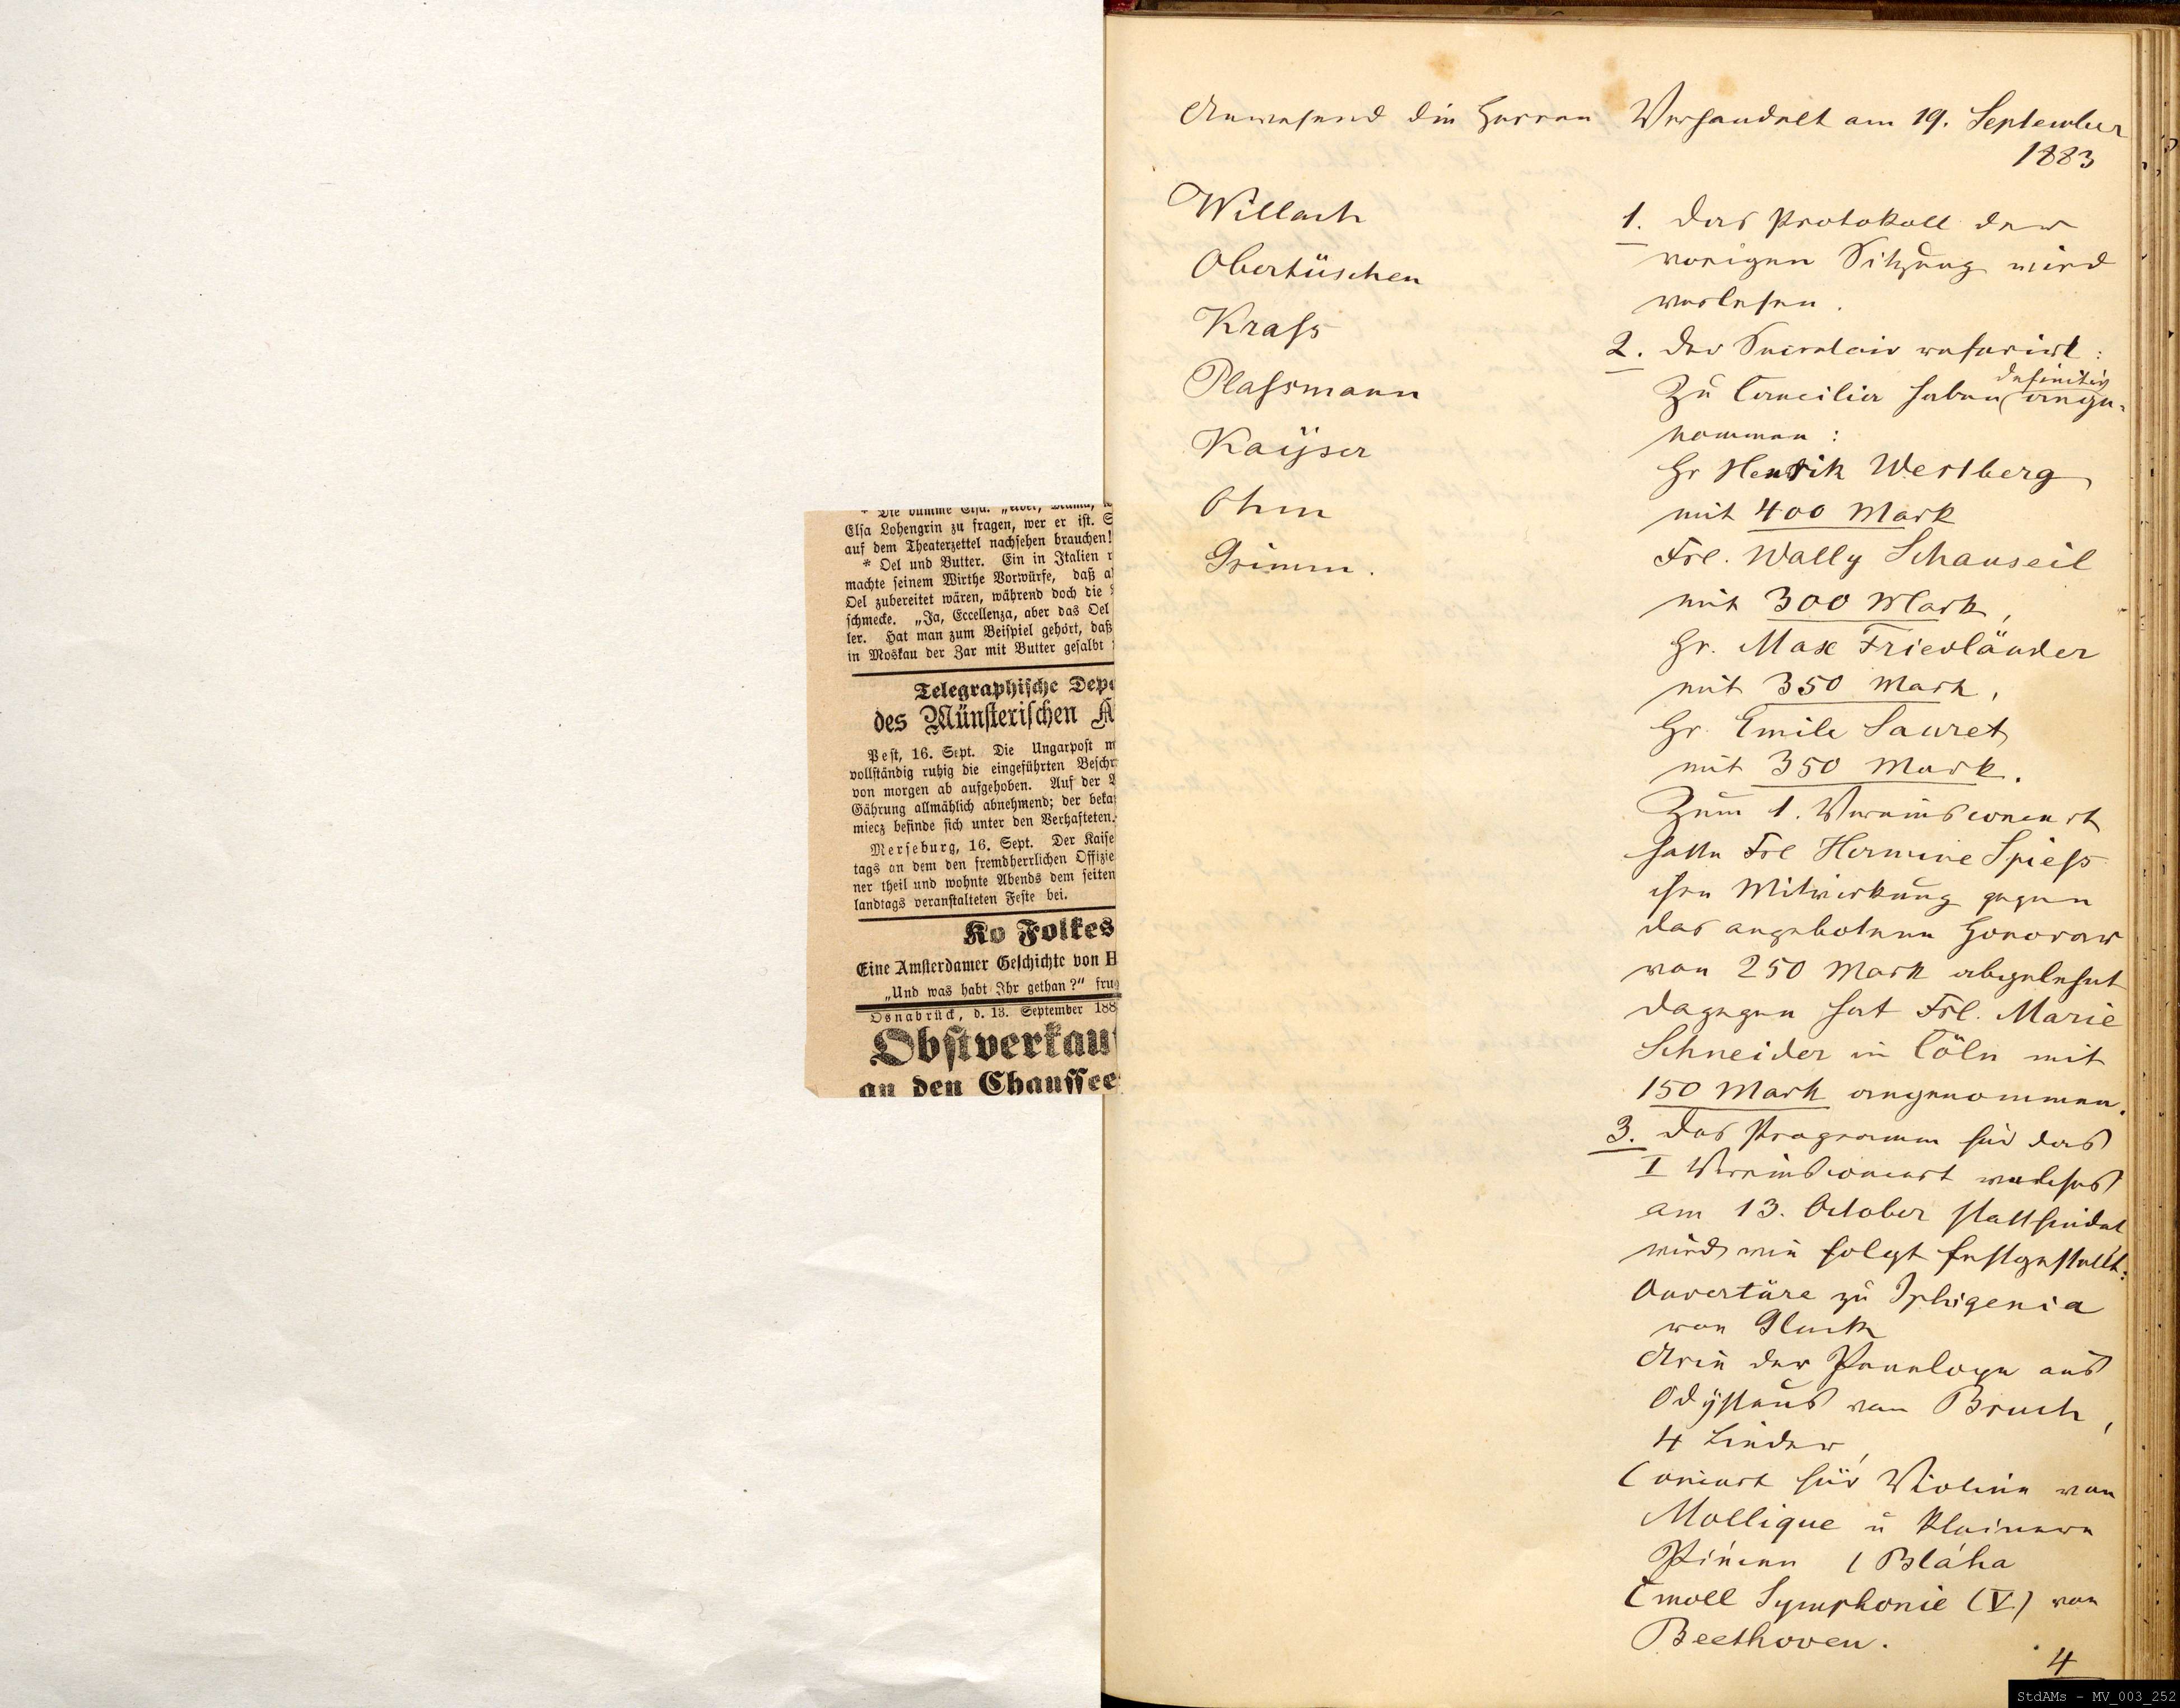 * Die dumme Elsa.
Elsa Lohengrin zu fragen, wer er ist.
auf dem Theaterzettel nachsehen brauchen!
* Oel und Butter. Ein in Italien
machte seinem Wirthe Vorwürfe, daß
Oel zubereitet wären, während doch die
schmecke. „Ja, Eccellenza, aber das Oel
ler. Hat man zum Beispiel gehört, daß
in Moskau der Zar mit Butter gesalbt
Telegraphische Depe
des Münsterischen A
Pest, 16. Sept. Die Ungarpost m
vollständig ruhig die eingeführten Beschr
von morgen ab aufgehoben. Auf der
Gährung allmählich abnehmend; der beka
miecz befinde sich unter den Verhafteten.
Merseburg, 16. Sept. Der Kaise
tags an dem den fremdherrlichen Offizie
ner theil und wohnte Abends dem seiten
landtags veranstalteten Feste bei.
Ko Folkes
Eine Amsterdamer Geschichte von H
„Und was habt Ihr gethan?" frug
Osnabrück, d. 13. September 188
Obstverkauf
an den Chaussee
Anwesend die Herren
Willach
Obertüschen
Krass
Plassmann
Kaÿser
Ohm
Grimm.
Verhandelt am 19. September
1883
1. Das Protokoll der
vorigen Sitzung wird
verlesen.
2. Der Secretair referirt:
Zu Caecilia haben definitiv ange-
nommen:
Hr Henrik Westberg
mit 400 Mark
Frl. Wally Schauseil
mit 300 Mark,
Hr. Max Friedländer
mit 350 Mark,
Hr Emile Sauret
mit 350 Mark.
Zum 1. Vereinsconcert
hatte Frl Hermine Spiess
ihre Mitwirkung gegen
das angebotene Honorar
von 250 Mark abgelehnt
dagegen hat Frl. Marie
Schneider in Cöln mit
150 Mark angenommen.
3. Das Programm für das
I Vereinsconcert welches
am 13. October stattfindet
wird wie folgt festgestellt:
Ouvertüre zu Iphigenia
von Gluck
Arie der Penelope aus
Odÿsseus von Bruch,
4 Lieder,
Concert für Violine von
Mollique u kleinere
Piècen (Bláha
C moll Symphonie (V) von
Beethoven.
4
StdAMs - MV_003_252